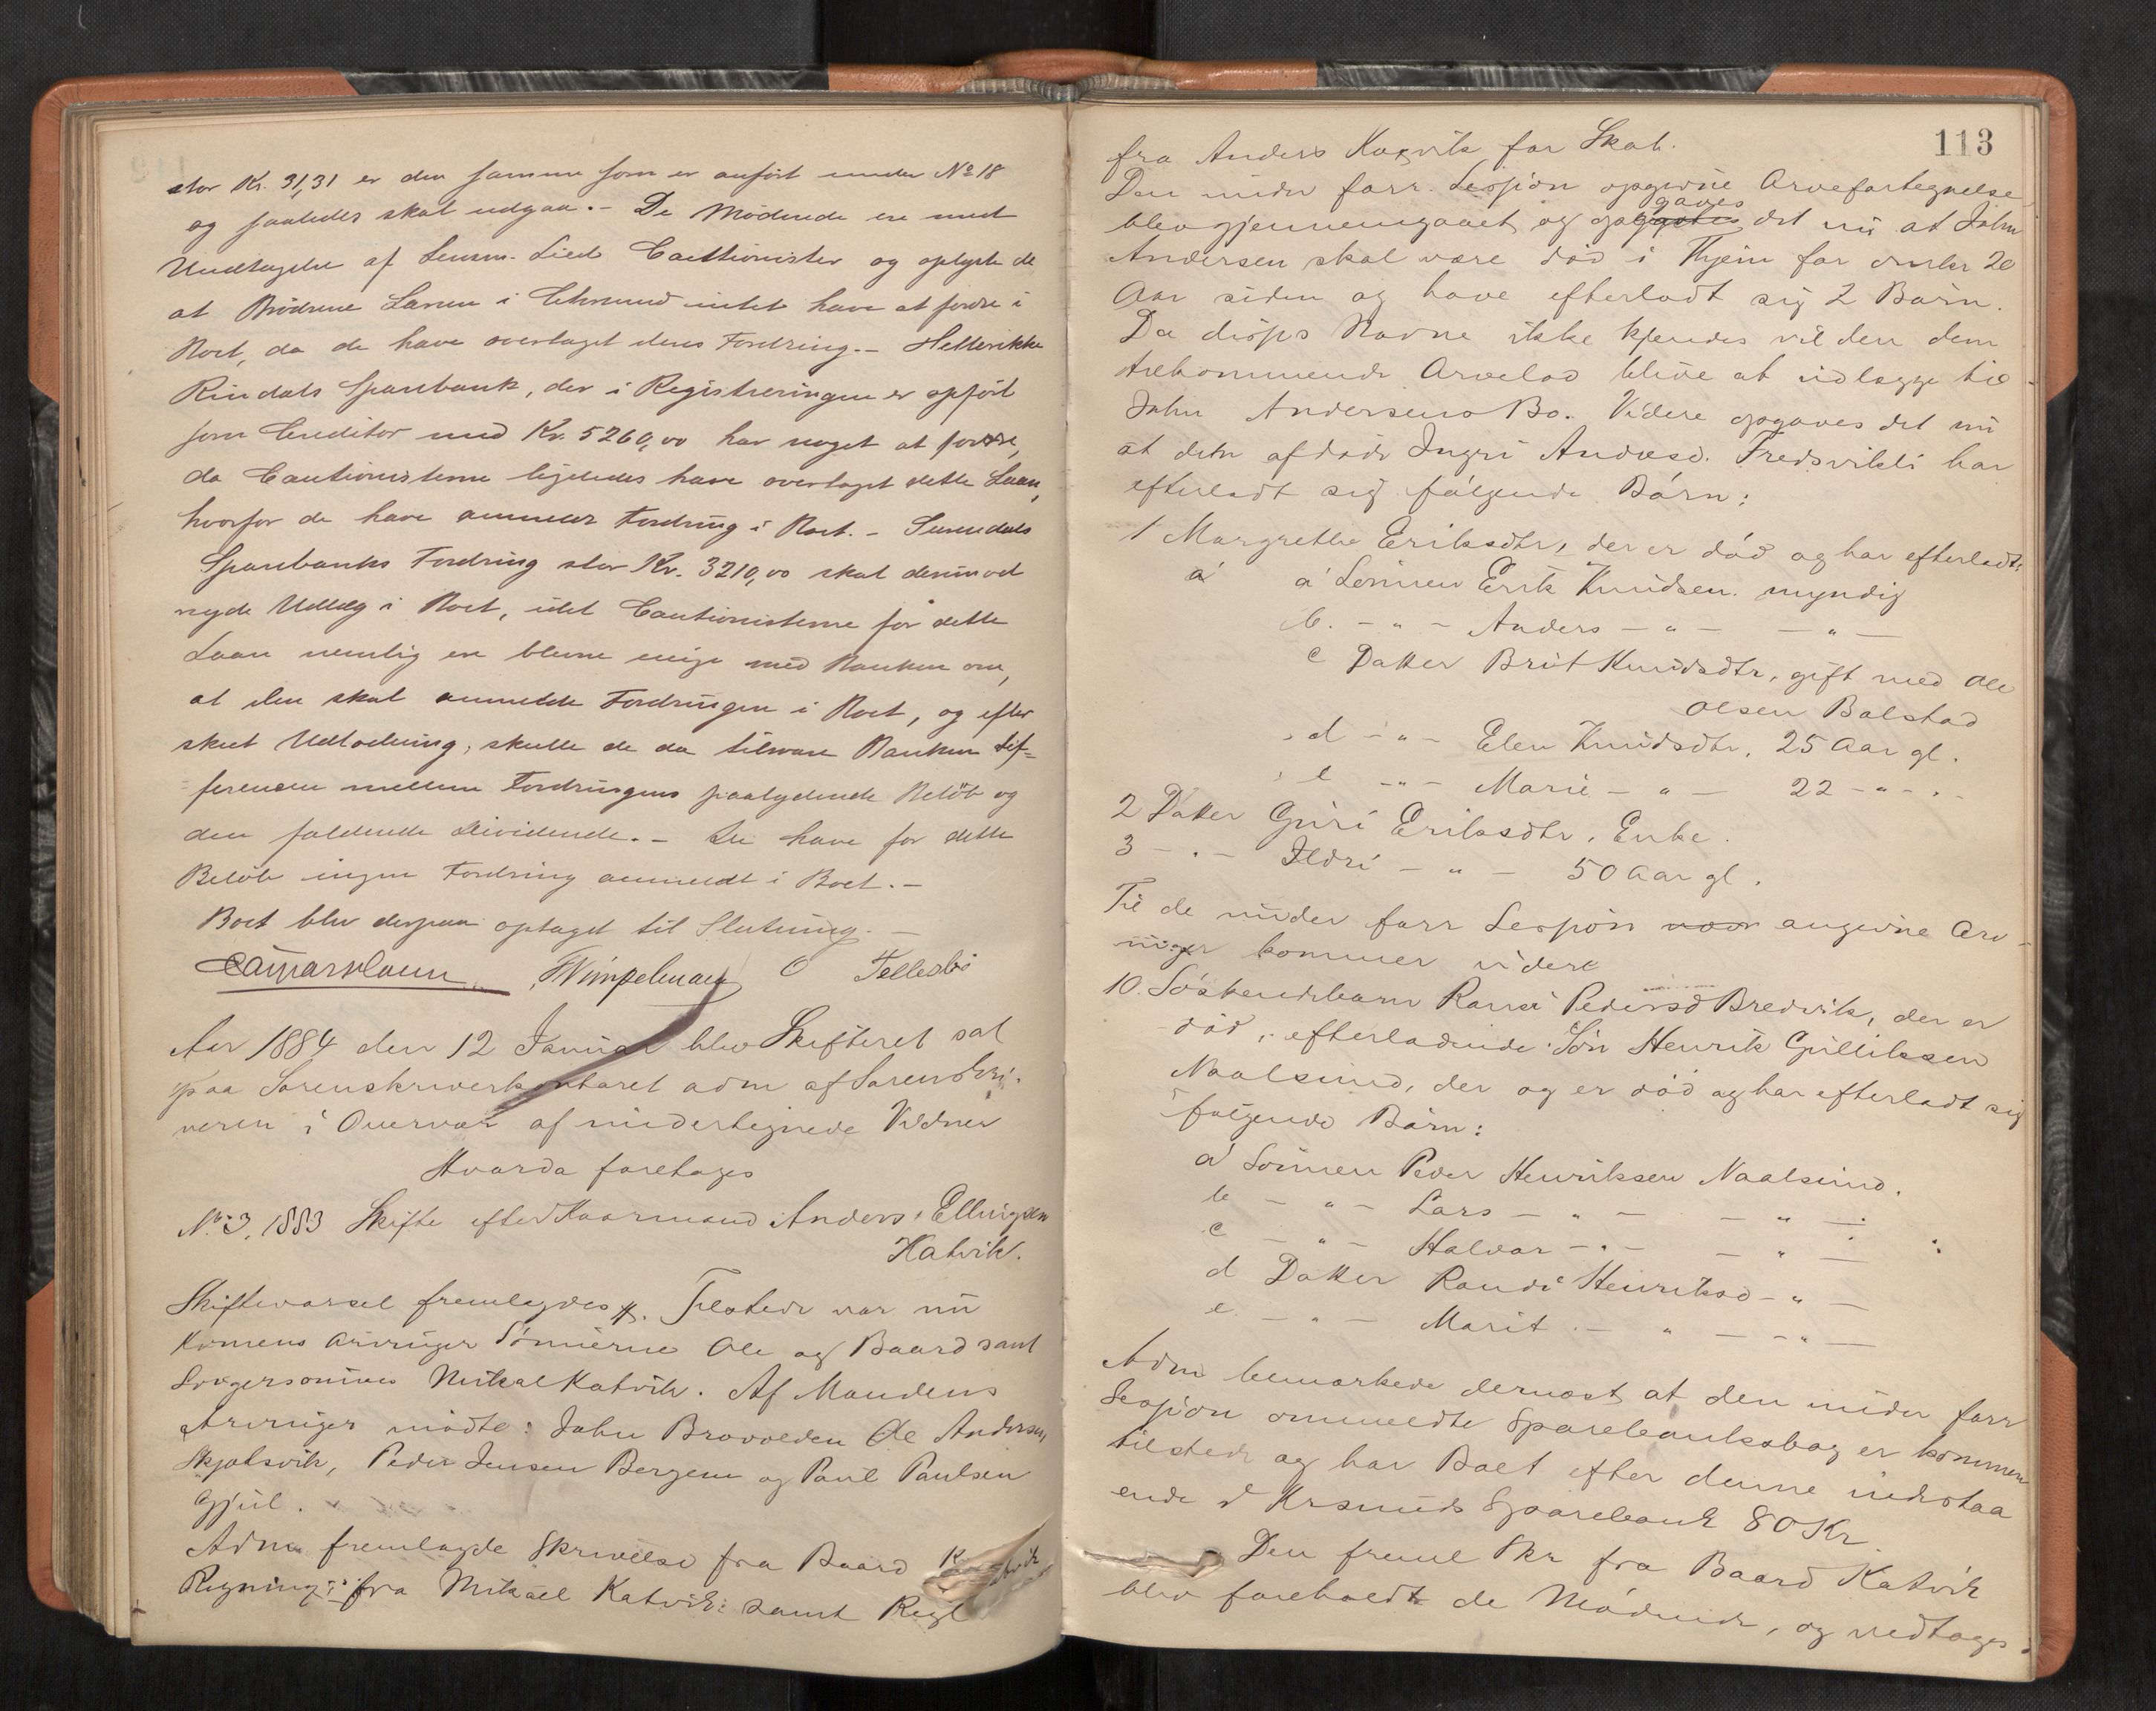 stor Kr. 31,31 er den samme som er anført under No 18
og saaledes skal udgaa. - De Mødende ere med
Undtagelse af Lensm. Lied Cautionister og oplyste de
at Brødrene Larsen i Chrsund intet have at fordre i
Boet, da de have overtaget deres Fordring. - Hellerikke
Rindals Sparebank, der i Registreringen er opført
som Creditor med Kr. 5260,00 har noget at fordre,
da Cautionisterne ligeledes have overtaget dette Laan,
hvorfor de have anmeldt Fordring i Boet. - Surendals
Sparebanks Fordring stor Kr. 3210,00 skal derimod
nyde Udlæg i Boet, idet Cautionisterne for dette
Laan nemlig ere blevne enige med Banken om,
at den skal anmelde Fordringen i Boet, og efter
skeet Udlodning, skulle de da tilsvare Banken Dif=
ferencen mellem Fordringens paalydende Beløb og
den faldende Dividende. - De have for dette
Beløb ingen Fordring anmeldt i Boet. -
Boet blev derpaa optaget til Slutning. -
Wimpelmann O Tellesbø
Aar 1884 den 12 Januar blev Skifteret sat
paa Sorenskriverkontoret adm af Sorenskri-
veren i Overvær af undertegnede Vidner
Hvorda foretoges
No. 3, 1883 Skifte efter Kaarmand Anders Ellingsen
Katvik.
Skiftevarsel fremlagdes. Tilstede var nu
Konens Arvinger Sønnerne Ole og Baard samt
Svigersønnen Mikal Katvik. Af Mandens
Arvinger mødte: John Brovolden Ole Andersen
Skjølsvik, Peder Jensen Bergem og Paul Paulsen
Gjul.
Adm fremlagde Skrivelse fra Baard Katvik
Regning fra Mikael Katvik samt Regl
113
fra Anders Korsvik for Skab.
Den under forr. Session opgivne Arvefortegnelse
blev gjennemgaaet og opgaves det nu at John
Andersen skal være død i Thjem for omkr 20
Aar siden og have efterladt sig 2 Børn.
Da disses Navne ikke kjendes vil den dem
tilkommende Arvelod blive at udlægge til
John Andersens Bo. Videre opgaves det nu
at den afdøde Ingri Andersd. Fredsvikli har
efterladt sig følgende Børn:
1 Margrethe Eriksdtr, der er død og har efterladt:
a a Sønnen Erik Knudsen. myndig
b. - " - Anders - " - - " -
c Datter Brit Knudsdtr, gift med Ole
Olsen Bolstad
d - " - Elen Knudsdtr, 25 Aar gl.
e - " - Marie - " - 22 - " - " -
2 Datter Guri Eriksdtr, Enke.
3 - " - Ildri - " - 50 Aar gl.
Til de under forr Session angivne Arv-
inger kommer videre
10. Søskendebarn Randi Pedersd Bredvik, der er
død, efterladende Søn Henrik Gulliksen
Naalsund, der og er død og har efterladt sig
følgende Børn:
a Sønnen Peder Henriksen Naalsund.
b - " - Lars - " - - " -
c - " - Halvor - " - - " -
d Datter Randi Henriksd - " -
e - " - Marit - " - - " -
Adm bemærkede dernæst at den under forr
Session ommeldte Sparebanksbog er kommen
tilstede og har Boet efter denne indestaa
ende i Krsunds Sparebank 80 Kr.
Den freml Skr fra Baard Katvik
blev foreholdt de Mødende, og vedtoges